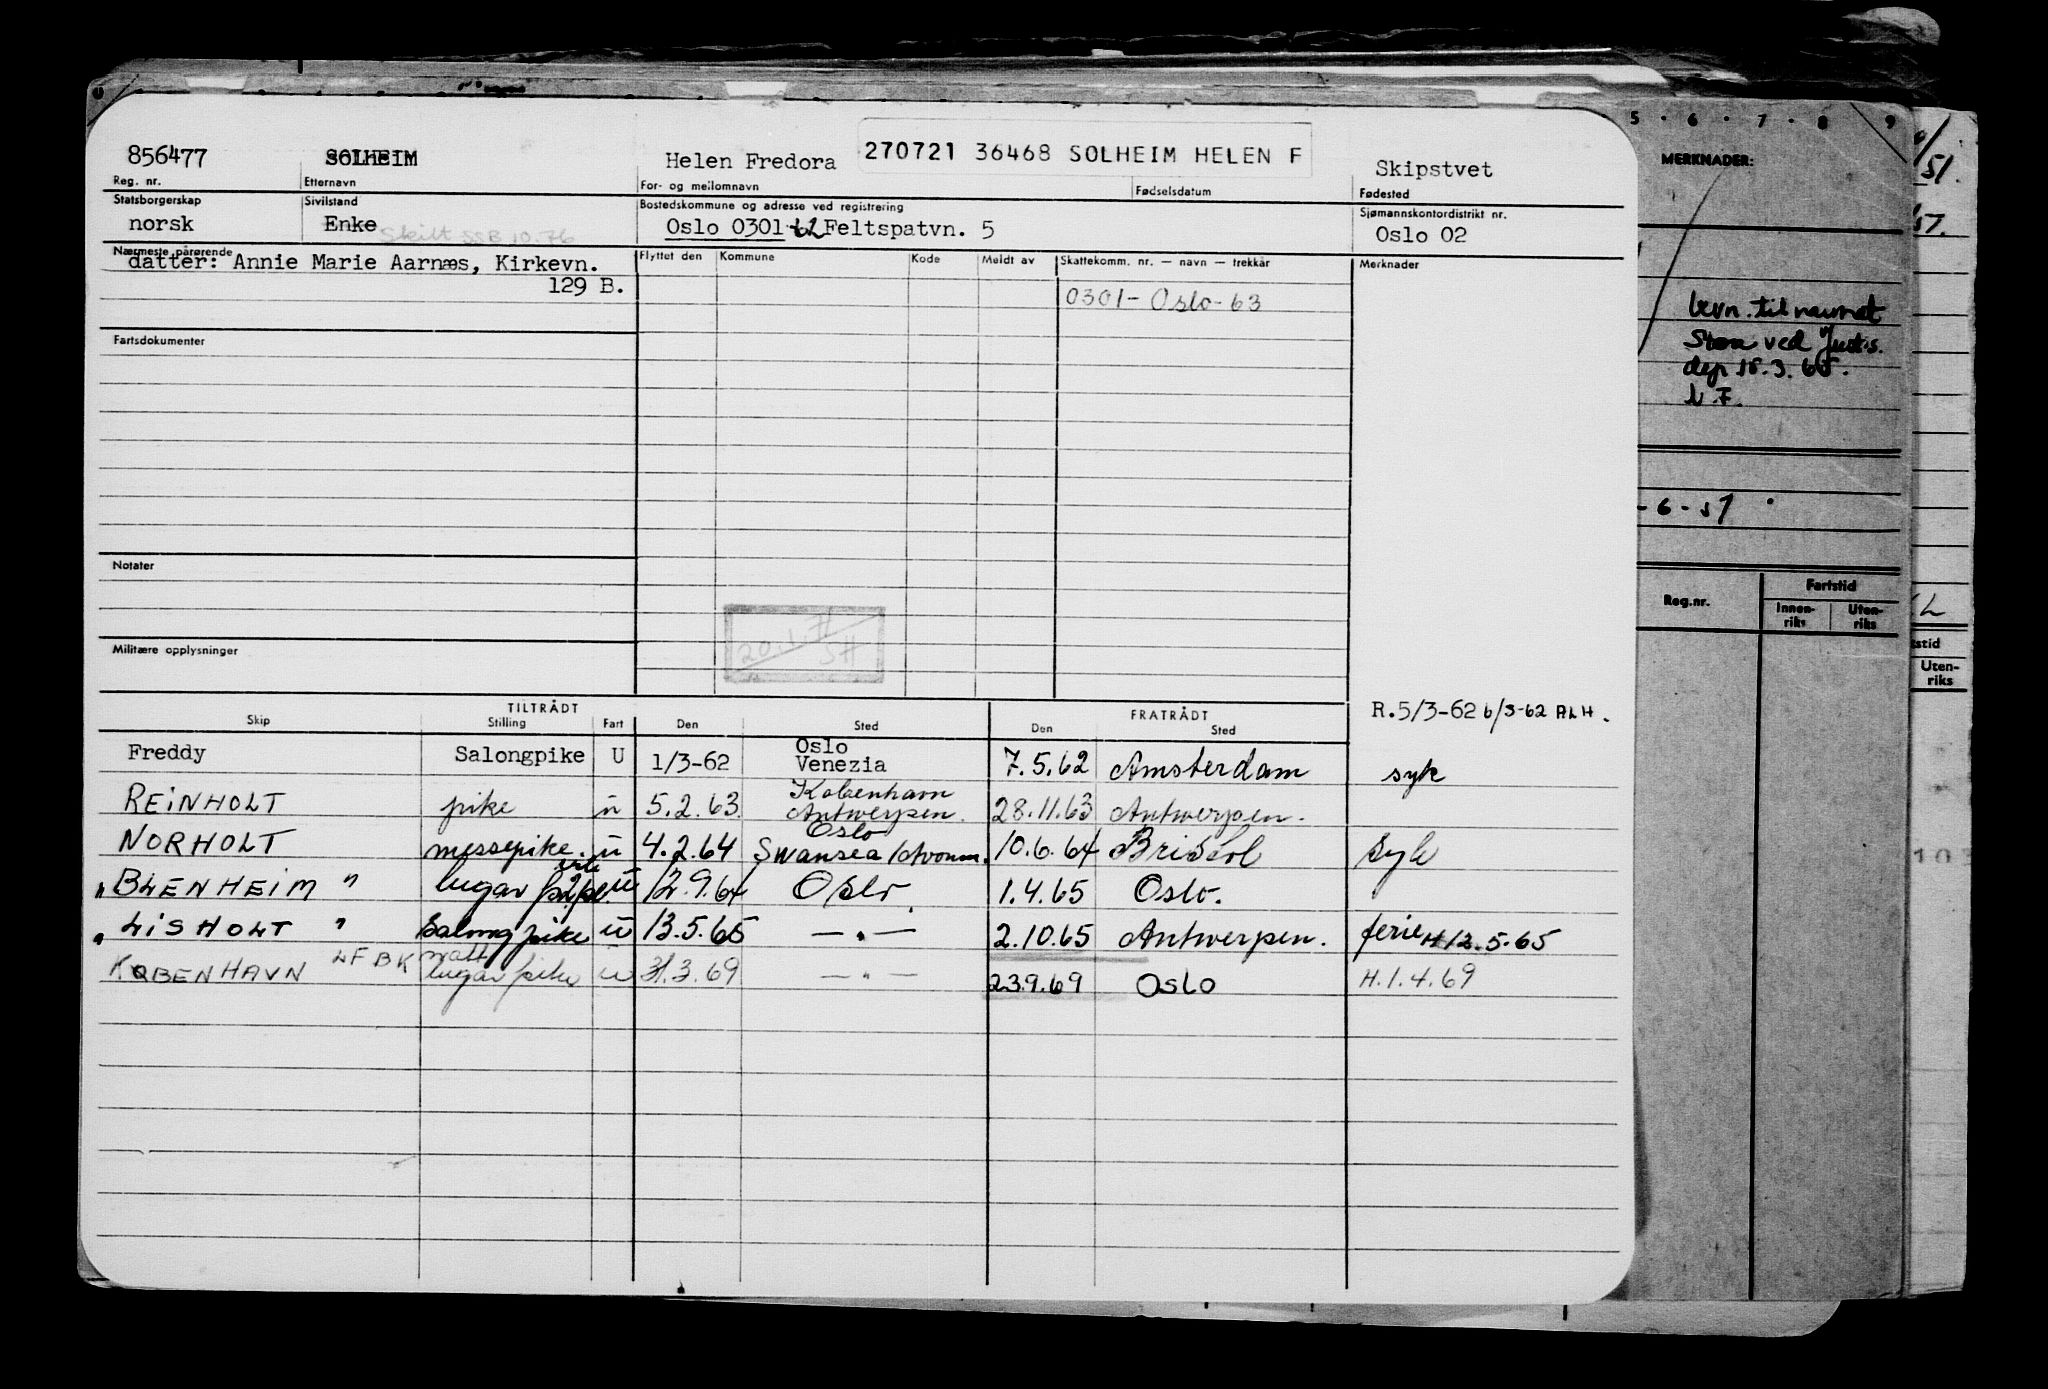 856477 SOLHEIM Helen Fredora 270721 36468 SOLHEIM HELEN F Skipstvet
Reg. nr. Etternavn For- og mellomnavn Fødselsdatum Fødested
Statsborgerskap Sivilstand Bostedskommune og adresse ved registrering Sjømannskontordistrikt nr.
norsk Enke Skilt SSB 10.76 Oslo 0301-62 Feltspatvn. 5 Oslo 02
Nærmeste pårørende Flyttet den Kommune Kode Meldt av Skattekomm. nr. — navn — trekkår Merknader
datter: Annie Marie Aarnæs, Kirkevn.
129 B.
0301- Oslo-63
Fartsdokumenter
Notater
20.1.71
SH
Militære opplysninger
TILTRÅDT FRATRÅDT R.5/3-62 6/3-62 ALH.
Skip Stilling Fart Den Sted Den Sted
Freddy Salongpike U 1/3-62 Oslo Venezia 7.5.62 Amsterdam syk
REINHOLT pike u 5.2.63 København Antwerpen. 28.11.63 Antwerpen.
NORHOLT messepike. u 4.2.64 Oslo Swansea /Avonm. 10.6.64 Bristol Syk
" BLENHEIM " lugarpike u 12.9.64 Oslo. 1.4.65 Oslo.
" LISHOLT " Salongpike u 13.5.65 — " — 2.10.65 Antwerpen. ferie H 12.5.65
KØBENHAVN LFBK natt lugarpike u 31.3.69 — " — 23.9.69 Oslo H.1.4.69
5 · 6 · 7 · 8 9
MERKNADER:
bevn. til navnet
ved Justis.
dep 15.3.65.
-6-57
Reg.nr. Fartstid
Innen-
riks
Uten-
riks
51.
57.
L
tstid
Uten-
riks
103